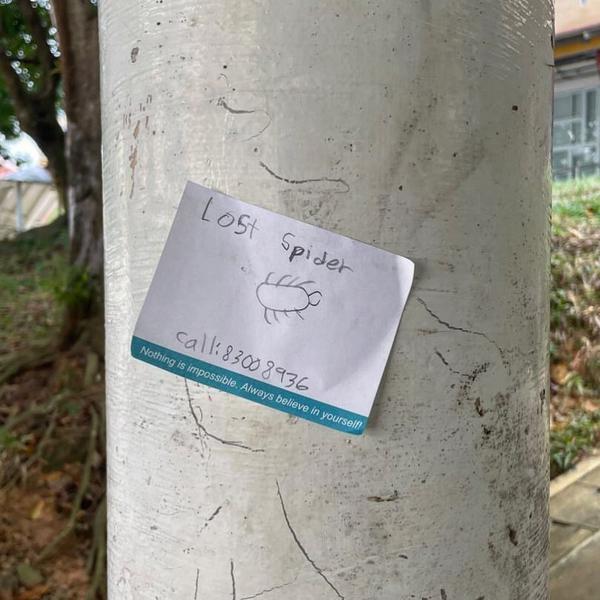 Lost Spider
call: 83008936
Nothing is impossible. Always believe in yourself!